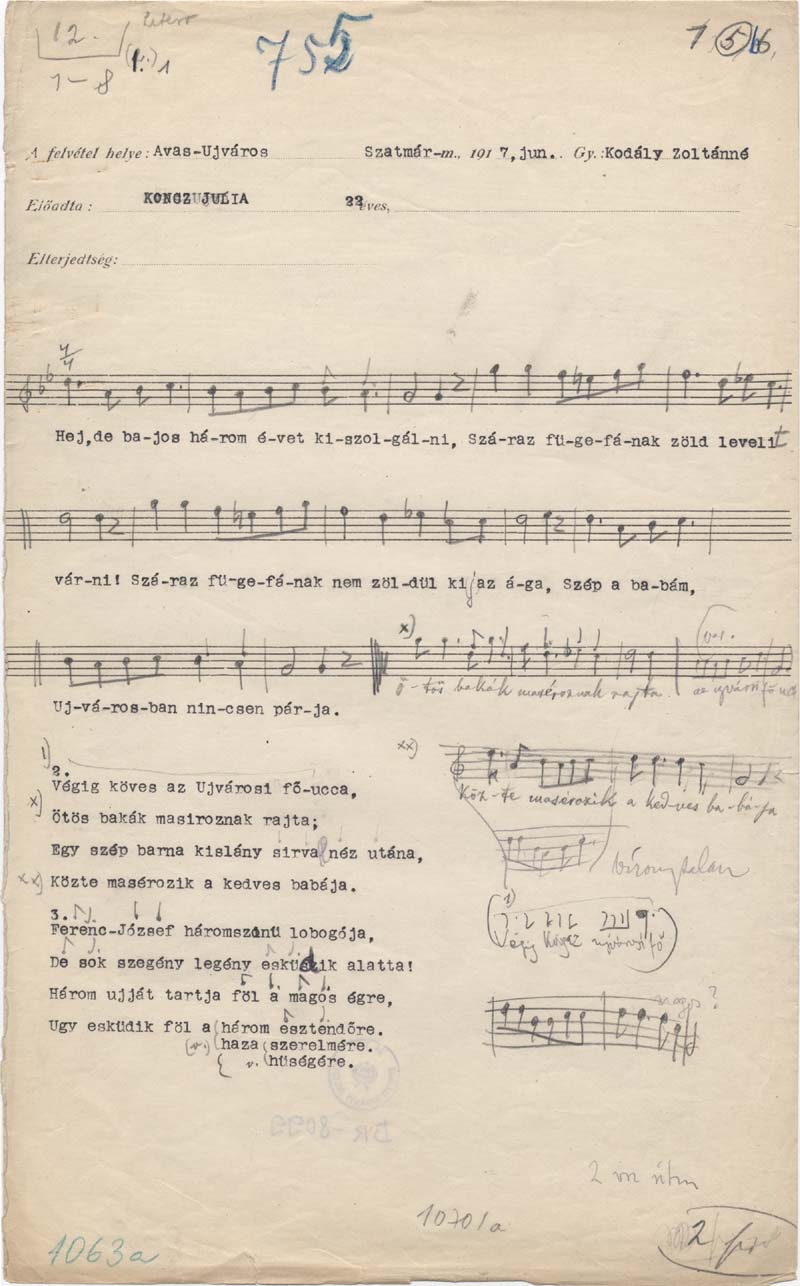 12.
1-8
755
1 5 6
A felvétel helye: Avas-Ujváros Szatmár-m., 1917, jun.. Gy.: Kodály Zoltánné
Előadta: KONCZ JULIA 22 éves,
Elterjedtség:
4/4
Hej,de ba-jos há-rom é-vet ki-szol-gál-ni, Szá-raz fü-ge-fá-nak zöld levelit
vár-ni! Szá-raz fü-ge-fá-nak nem zöl-dül ki az á-ga, Szép a ba-bám,
x)
Ö-tös bakák maséroznak rajta
Uj-vá-ros-ban nin-csen pár-ja.
1)
2.
Végig köves az Ujvárosi fő-ucca,
x) Ötös bakák masiroznak rajta;
Egy szép barna kislány sirva néz utána,
xx) Közte masérozik a kedves babája.
xx)
Köz-te masérozik a ked-ves ba-bá-ja
bizonytalan
1)
3.
Ferenc-József háromszinü lobogója,
De sok szegény legény esküszik alatta!
Három ujját tartja föl a magos égre,
Ugy esküdik föl a (három esztendőre.
(v.) (haza (szerelmére.
v. (hüségére.
magos?
BR-8099
10701a
1063a
2